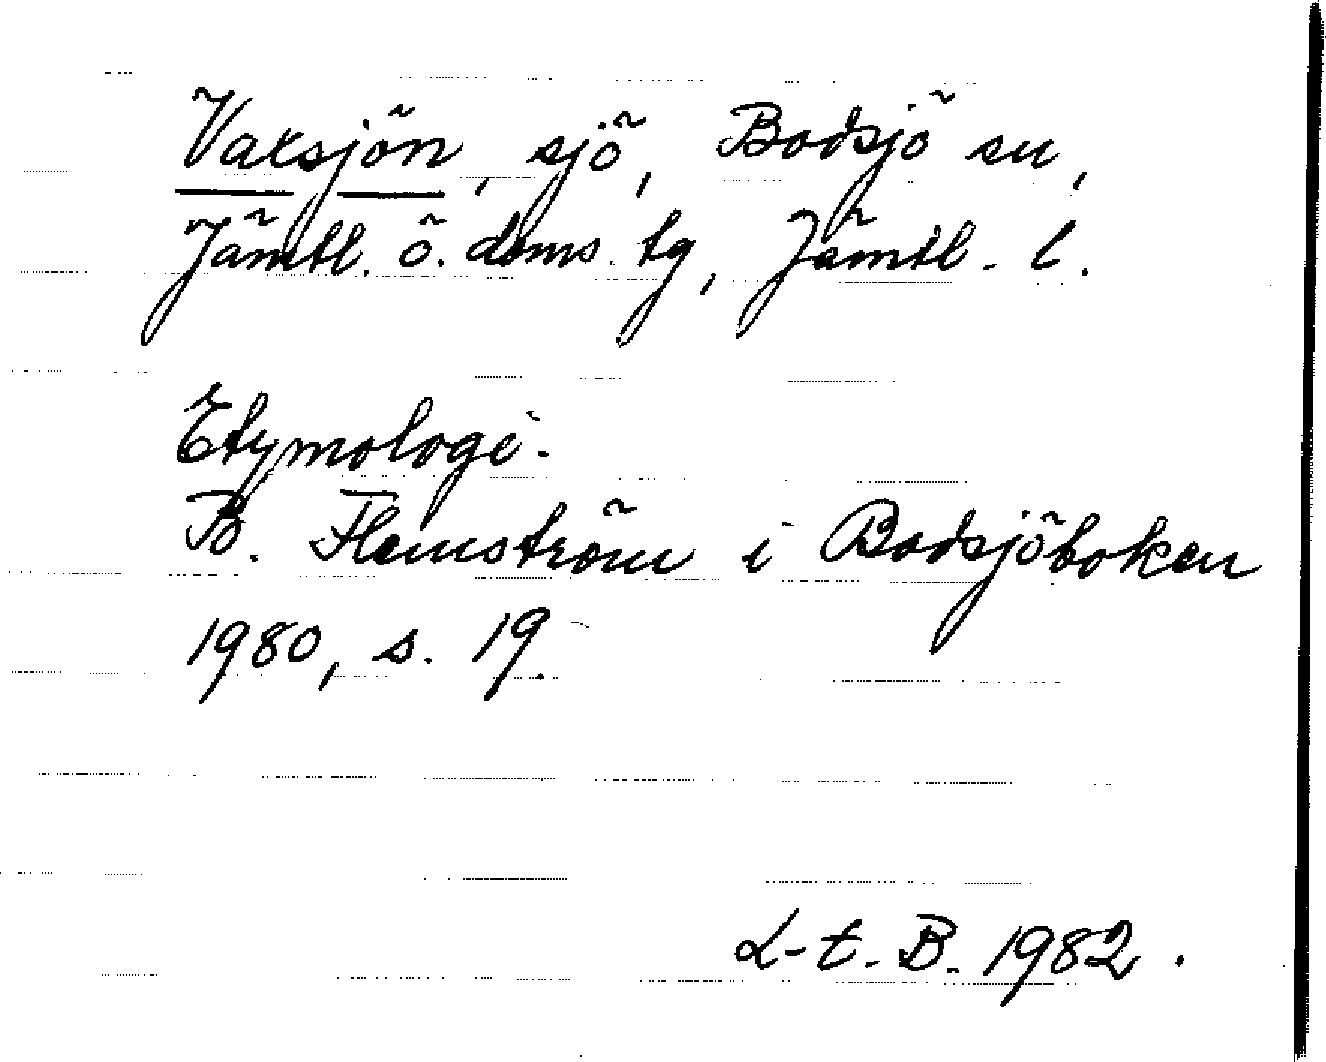 sjö, Bodsjö sn,
Jämtl. ö. doms. tg, Jämtl. l.
Etymologi.
B. Flemström i Bodsjöboken
1980, s. 19.
L-t. B. 1982.